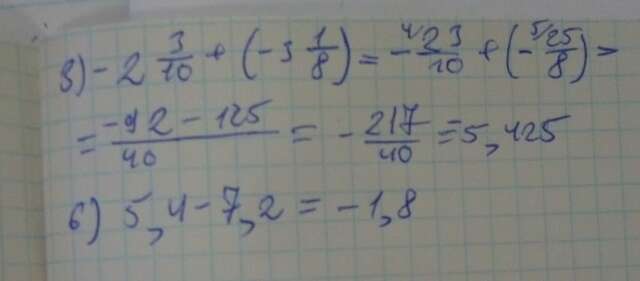 в) - 2 3/10 + (- 3 1/8) = - ⁴/23/10 + (- ⁵/25/8) =
= -92 - 125/40 = - 217/40 = 5,425
б) 5,4 - 7,2 = -1,8